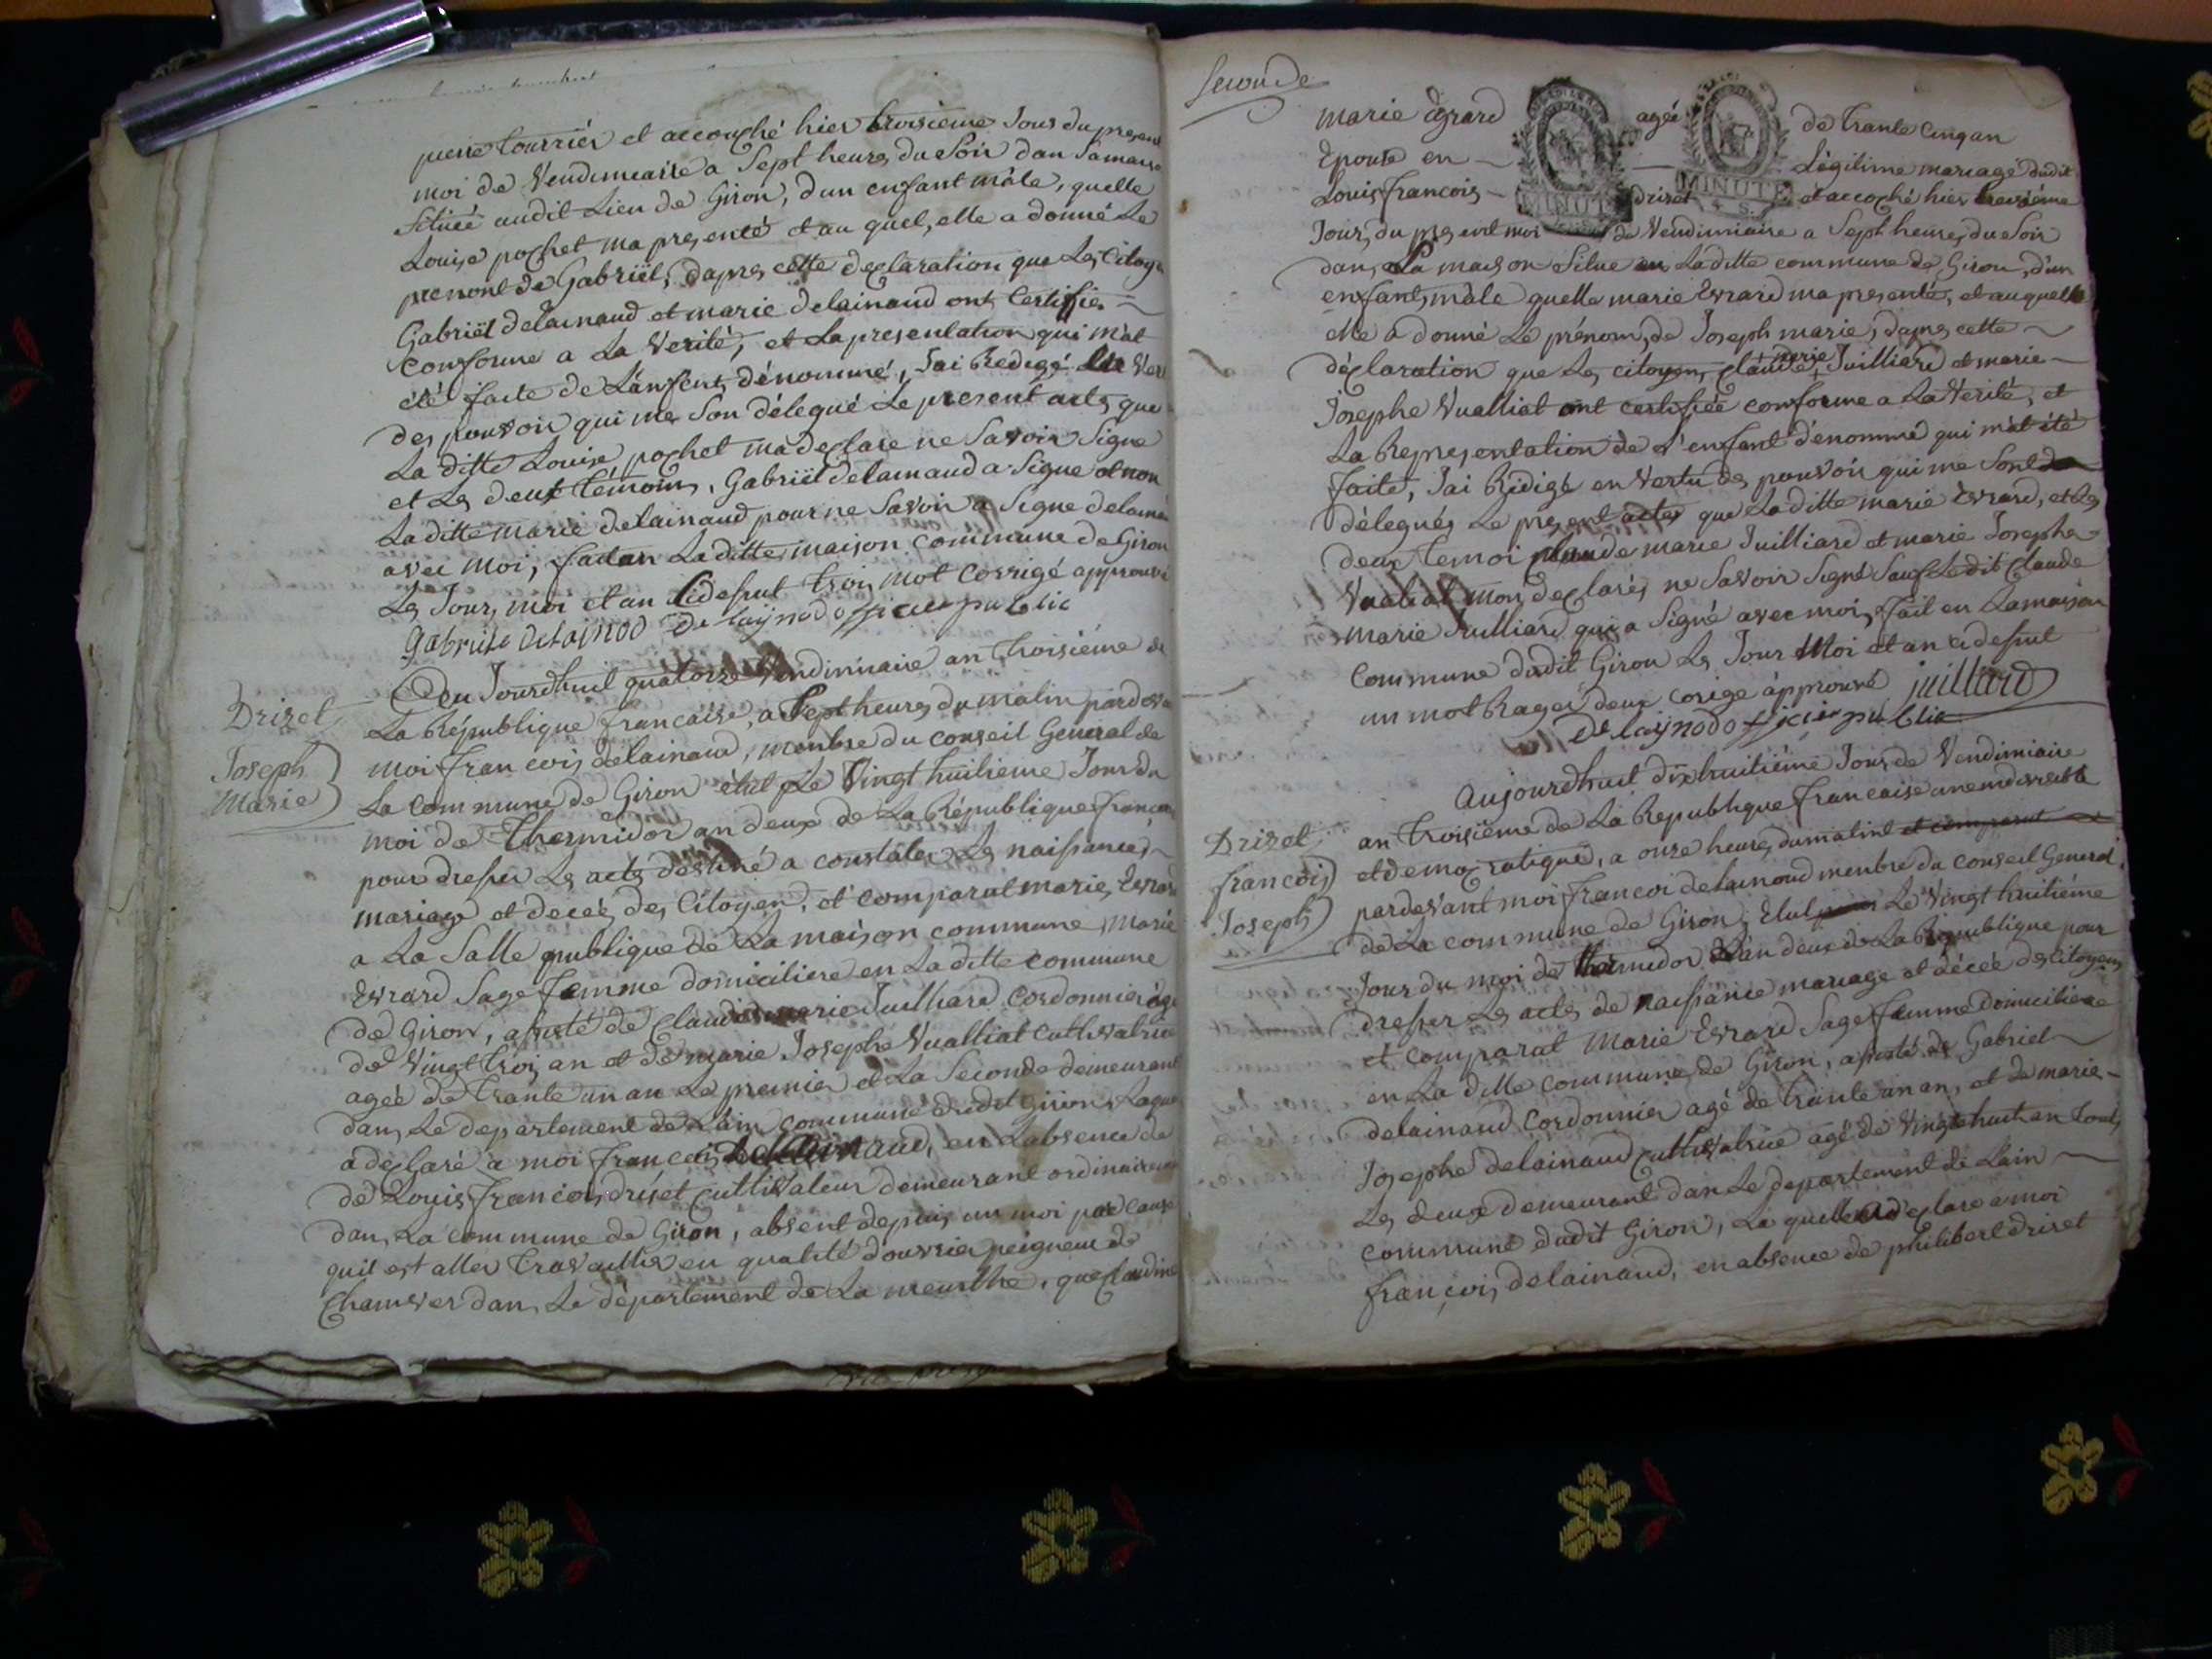 pierre tournier et accouché hier troisieme Jour du present
moi de Vendimeaire a Sept heures du Soir dan Samaiso
Située audit Lieu de Giron, d'un enfant mâle, quelle
Louise pochet ma presenté et au quel, elle a donné Le
prenont de Gabriël, d'apres cette declaration que Les Citoye
Gabriël delainaud et marie delainaud ont Certiffie
Conforme a La Verité, et La presentation qui m'at
été faite de L'enfent dénommé, J'ai Redigé en Ver
des pouvoir qui me Son délegué Le present acte, que
La ditte Louise pochet ma declare ne Savoir Signe
et Les deux témoins, Gabriël delainaud a Signe et non
La ditte marie delainaud pour ne Savoir a Signe delaina
avec moi, fait en La ditte maison Commune de Giron
Les Jour, moi et an Cidesut trois mot Corrigé approuvé
gabriele delaynod De laynod officier public
Drizet
Joseph
Marie
Du Jourdhuit quatorze Vendimiaire an troisiéme de
La République francaise, a Sept heures du matin pardeva
moi francois delainaud, menbre du conseil General de
La commune de Giron élut Le Vingt huitieme Jour du
moi de Thermidor an deux de La République francai
pour dresser Les acts destiné a constater Les naissances,
mariage et decés des Citoyen, et comparat marie Evrard
a La Salle publique de La maison commune marie
Evrard Sage femme domiciliere en La ditte commune
de Giron, assisté de Claude marie Juilliard Cordonnier âgé
de Vingt trois an et de marie Josephe Vualliat Cultivatrice
agée de trante un an Le premier et La Seconde demeurant
dans Le departement de Lain commune dudit Giron, Laque
a declaré a moi francois delainaud, en Labsence de
de Louis francois drizet Cultivateur demeurant ordinaireme
dans La commune de Giron, absent depuis un moi par cause
quil est aller travaillier en qualité d'ouvrier peigneur de
Chanvre dans Le département de La meurthe, que Claudine
Seconde
marie Evrard agée de trante Cinq an
Epouse en Légitime mariage dudit
Louis francois drizet et accoché hier treiziéme
Jour, du present moi de Vendimiaire a Sept heures du Soir
dans La maison Situe en Laditte commune de Giron, d'un
enfant mâle quelle marie Evrard ma presenté, et auquelle
elle a donné Le prénom de Joseph marie, dapres cette
déclaration que Les citoyens Claude marie Juilliard et marie
Josephe Vualliat ont certifiée conforme a La Verité, et
La Representation de L'enfant dénommé qui m'at été
faite, J'ai Rédigé en Vertu des pouvoir qui me Sont
délegués Le present actes que Laditte marie Evrard, et Les
deux temoi Claude marie Juilliard et marie Josephe
Vualiat mon declarés ne Savoir Signé Sauf Ledit Claude
marie Juilliard qui a Signé avec moi, fait en La maison
Commune dudit Giron Les Jour Moi et an cidesut
un mot Rager deux corige approuvé juilliard
De laynod officier public
Drizet
francois
Joseph
Aujourdhuit dixhuitiéme Jour de Vendimiaire
an troisiéme de La Republique francaise une indivisible
et democratique, a onze heures dumatint et comparut
pardevant moi francoi delainaud menbre du conseil General
de La commune de Giron, Elut Le Vingt huitiéme
Jour du moi de thermidor L'an deux de La Republique pour
dresser Les acts de naissance mariage et décée des citoyens
et comparat Marie Evrard Sage femme domiciliere
en La ditte commune de Giron, assisté de Gabriel
delainaud Cordonnier agé de trante un an, et de marie
Josephe delainaud Cultivatrice agé de Vingt huit an tout,
Les deux demeurant dan Le departement de Lain
commune dudit Giron, La quelle a declare a moi
françois delainaud, en absence de philibert drizet